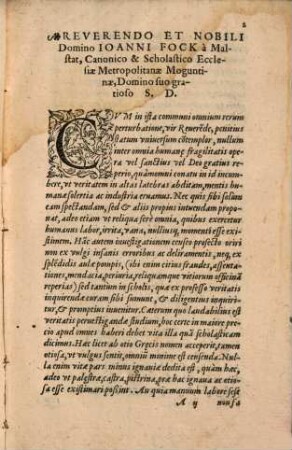 2
REVERENDO ET NOBILI
Domino IOANNI FOCK à Mal-
stat, Canonico & Scholastico Eccle-
siæ Metropolitanæ Mogunti-
næ, Domino suo gra-
tioso S. D.
CVM in ista communi omnium rerum
perturbatione, vir Reuerēde, penitius
statum vniuersum cōtemplor, nullum
inter omnia humanę fragilitatis ope-
ra vel sanctius vel Deo gratius re-
perio, quàm omni conatu in id incum-
bere, vt veritatem in altas latebras abditam, mentis hu-
manæ solertia ac industria eruamus. Nec quis sibi solum
eam spectandam, sed & alijs propini intuendam propo-
nat, adeo etiam vt reliqua ferè omnia, quibus exercetur
humanus labor, irrita, vana, nulliusq; momenti esse exi-
stimem. Hâc autem inuestigationem censeo profectò viri
non ex vulgi insanis erroribus ac deliramentis, neq; ex
splēdidis aulæ pompis, (vbi enim citius fraudes, assenta-
tiones, mendacia, periuria, reliquamque vitiorum officinā
reperias) sed tantùm in scholis, quæ ex professo veritati
inquirendæ curam sibi sumunt, & diligentius inquiri-
tur, & promptius inuenitur. Cæterum quo laudabilius est
veritatis peruestigandæ studium, hoc certè in maiore pre-
cio apud omnes haberi debet vita illa quā scholasticam
dicimus. Hæc licet ab otio Gręcis nomen acceperit, tamen
otiosa, et vulgus sentit, omniū minimè est censenda. Nul-
la enim vitæ pars minus ignauiæ dedita est, quàm hæc,
adeò vt palęstra, castra, pistrina, præ hac ignaua ac otio-
sa esse existimari possint. An quia manuum labore sese
A ij non su